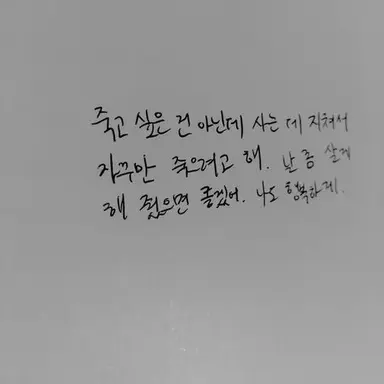 죽고 싶은 건 아닌데 사는 데 지쳐서
자꾸만 죽으려고 해. 난 좀 살게
해 줬으면 좋겠어. 나도 행복하게.